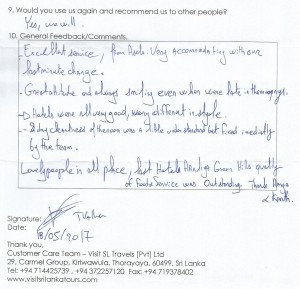 9. Would you use us again and recommend us to other people?
Yes, we will.
10. General Feedback/Comments.
- Excellent service, from Asela. Very accommodating with our
last minute change.
- Great attitude and always smiling even when we were late in the mornings.
- Hotels were all very good, very different in style.
- cleanliness of the room was a little but fixed immediatly
by the team.
Lovely people in all place, last Hotel Green Hills quality
of Food & Service was Outstanding. Thank
Signature:
Date: 18/05/2017
Thank you.
Customer Care Team – Visit SL Travels [Pvt] Ltd
29, Carmel Group, Kiriwawula, Thorayaya, 60499, Sri Lanka
Tel: +94 714425739 , +94 372257120 Fax: +94 719378402
www.visitsrilankatours.com